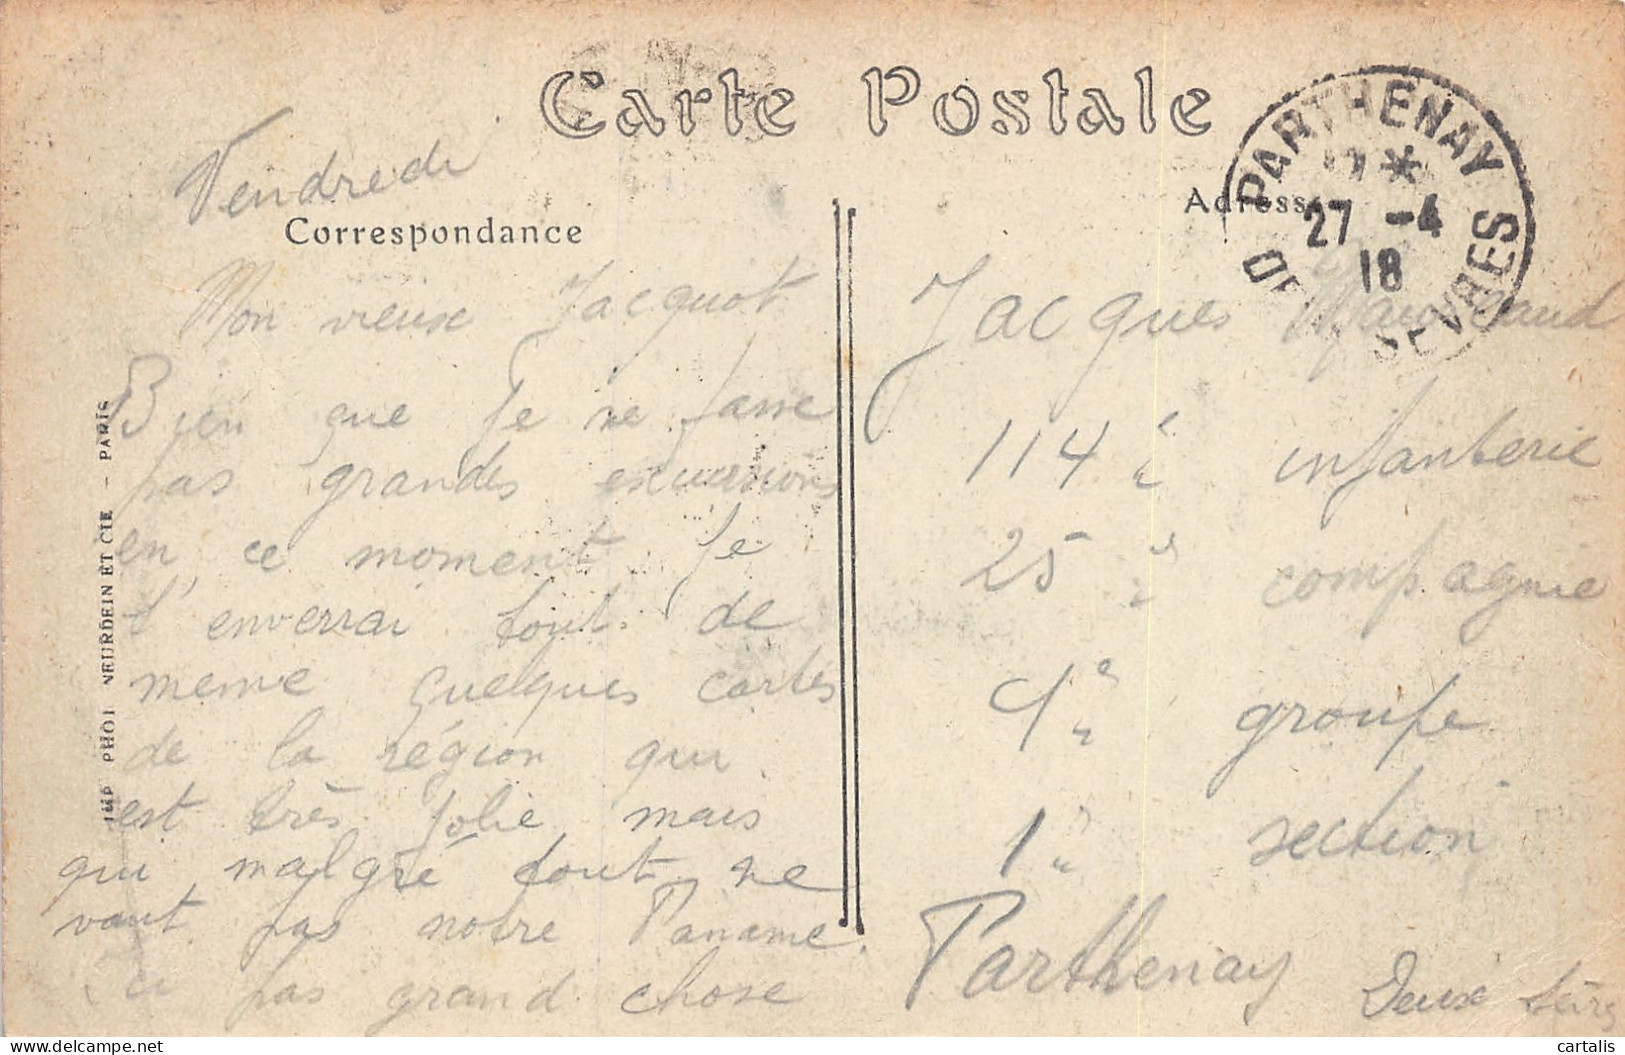 Carte Postale
Vendredi
Correspondance
Mon vieux Jacquot
Bien que je ne fasse
pas grandes excursions
en ce moment je
t'enverrai tout de
meme quelques cartes
de la région qui
est très jolie mais
qui malgré tout ne
vaut pas notre Paname.
Ici pas grand chose
IMP PHOT NEURDEIN ET CIE - PARIS
PARTHENAY
27 -4
18
SEVRES
Adresse
Jacques
114e infanterie
25e compagnie
4e groupe
1e section
Parthenay
Deux Sèvres
cartalis
delcampe.net